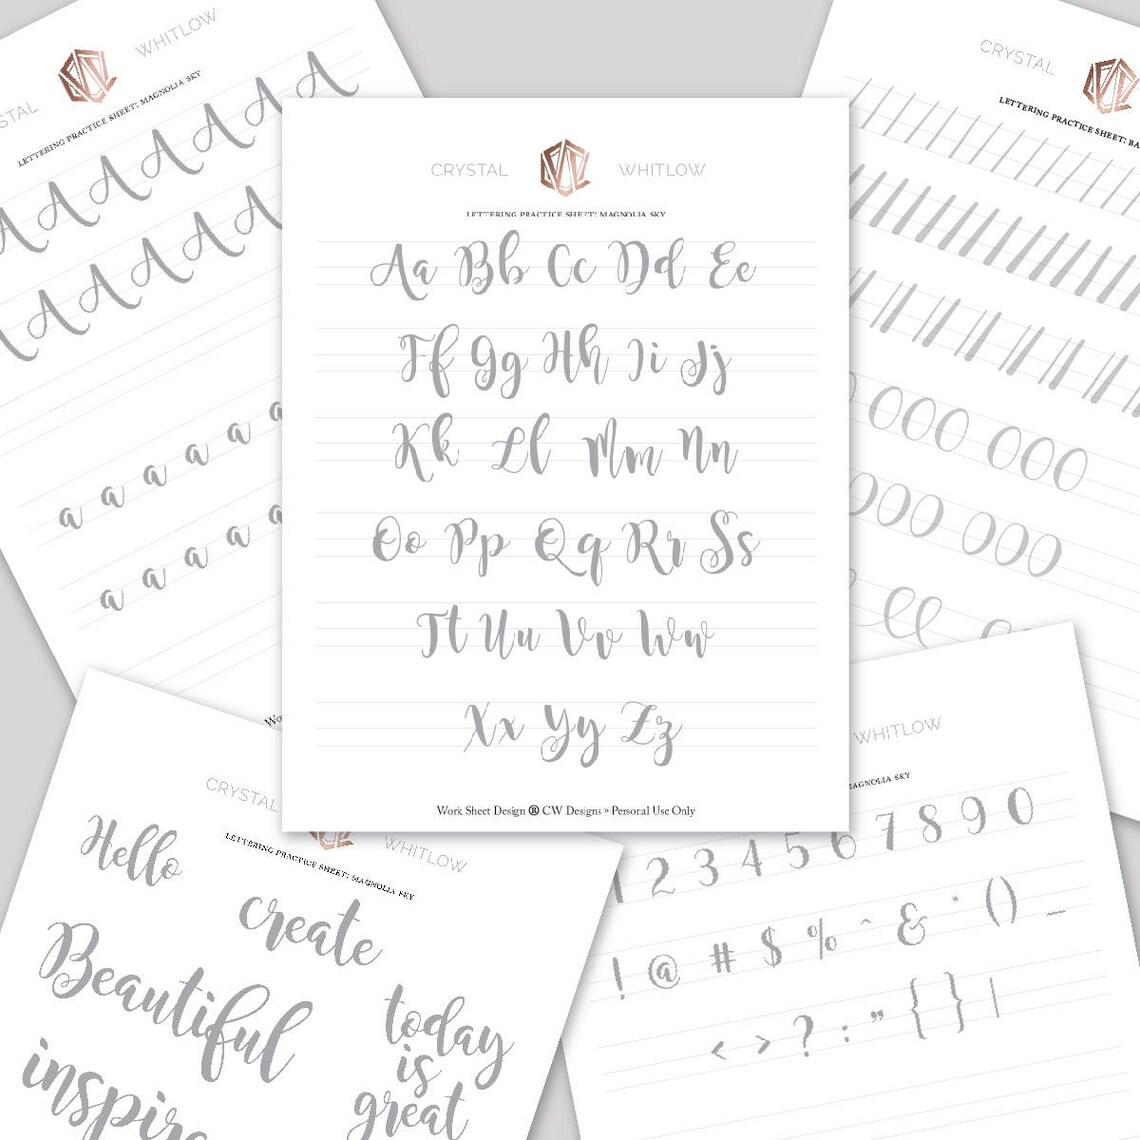 CRYSTAL WHITLOW
LETTERING PRACTICE SHEET: MAGNOLIA SKY
A A A A A A A A
A A A A A A A
a a a a a a
a a a a a
CRYSTAL WHITLOW
LETTERING PRACTICE SHEET: MAGNOLIA SKY
Aa Bb Cc Dd Ee
Ff Gg Hh Ii Jj
Kk Ll Mm Nn
Oo Pp Qq Rr Ss
Tt Uu Vv Ww
Xx Yy Zz
Work Sheet Design ® CW Designs » Personal Use Only
CRYSTAL
LETTERING PRACTICE SHEET: BA
CRYSTAL WHITLOW
LETTERING PRACTICE SHEET: MAGNOLIA SKY
Hello
create
Beautiful
today
is
great
inspire
WHITLOW
MAGNOLIA SKY
1 2 3 4 5 6 7 8 9 0
! @ # $ % ^ & * ( ) _
< > ? : " { } |